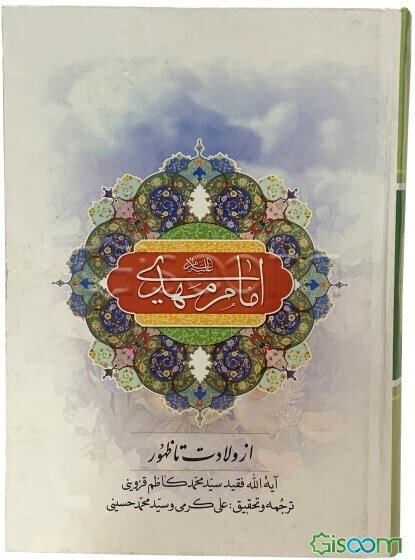 امام مهدی علیه‌السلام
از ولادت تا ظهور
آیة الله فقید سیّد محمّد کاظم قزوینی
ترجمه و تحقیق: علی کرمی و سیّد محمّد حسینی
Gisoom